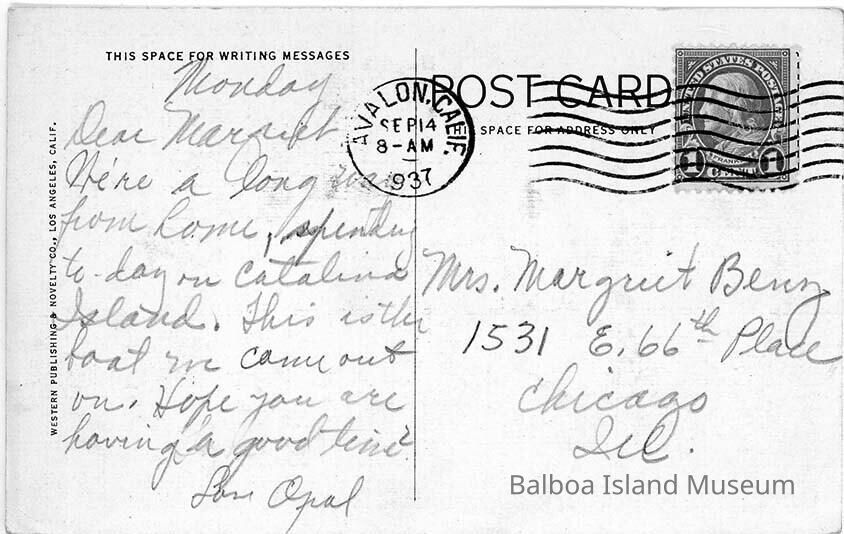 THIS SPACE FOR WRITING MESSAGES
Monday
Dear Margriet
We're a long way
from home, spending
to-day on Catalina
Island. This is the
boat we came out
on. Hope you are
having a good time
Love Opal
WESTERN PUBLISHING & NOVELTY CO., LOS ANGELES, CALIF.
POST CARD
THIS SPACE FOR ADDRESS ONLY
AVALON, CALIF.
SEP 14
8-AM
1937
UNITED STATES POSTAGE
FRANKLIN
1 1
Mrs. Margriet Benz
1531 E. 66th Place
Chicago
Ill.
Balboa Island Museum